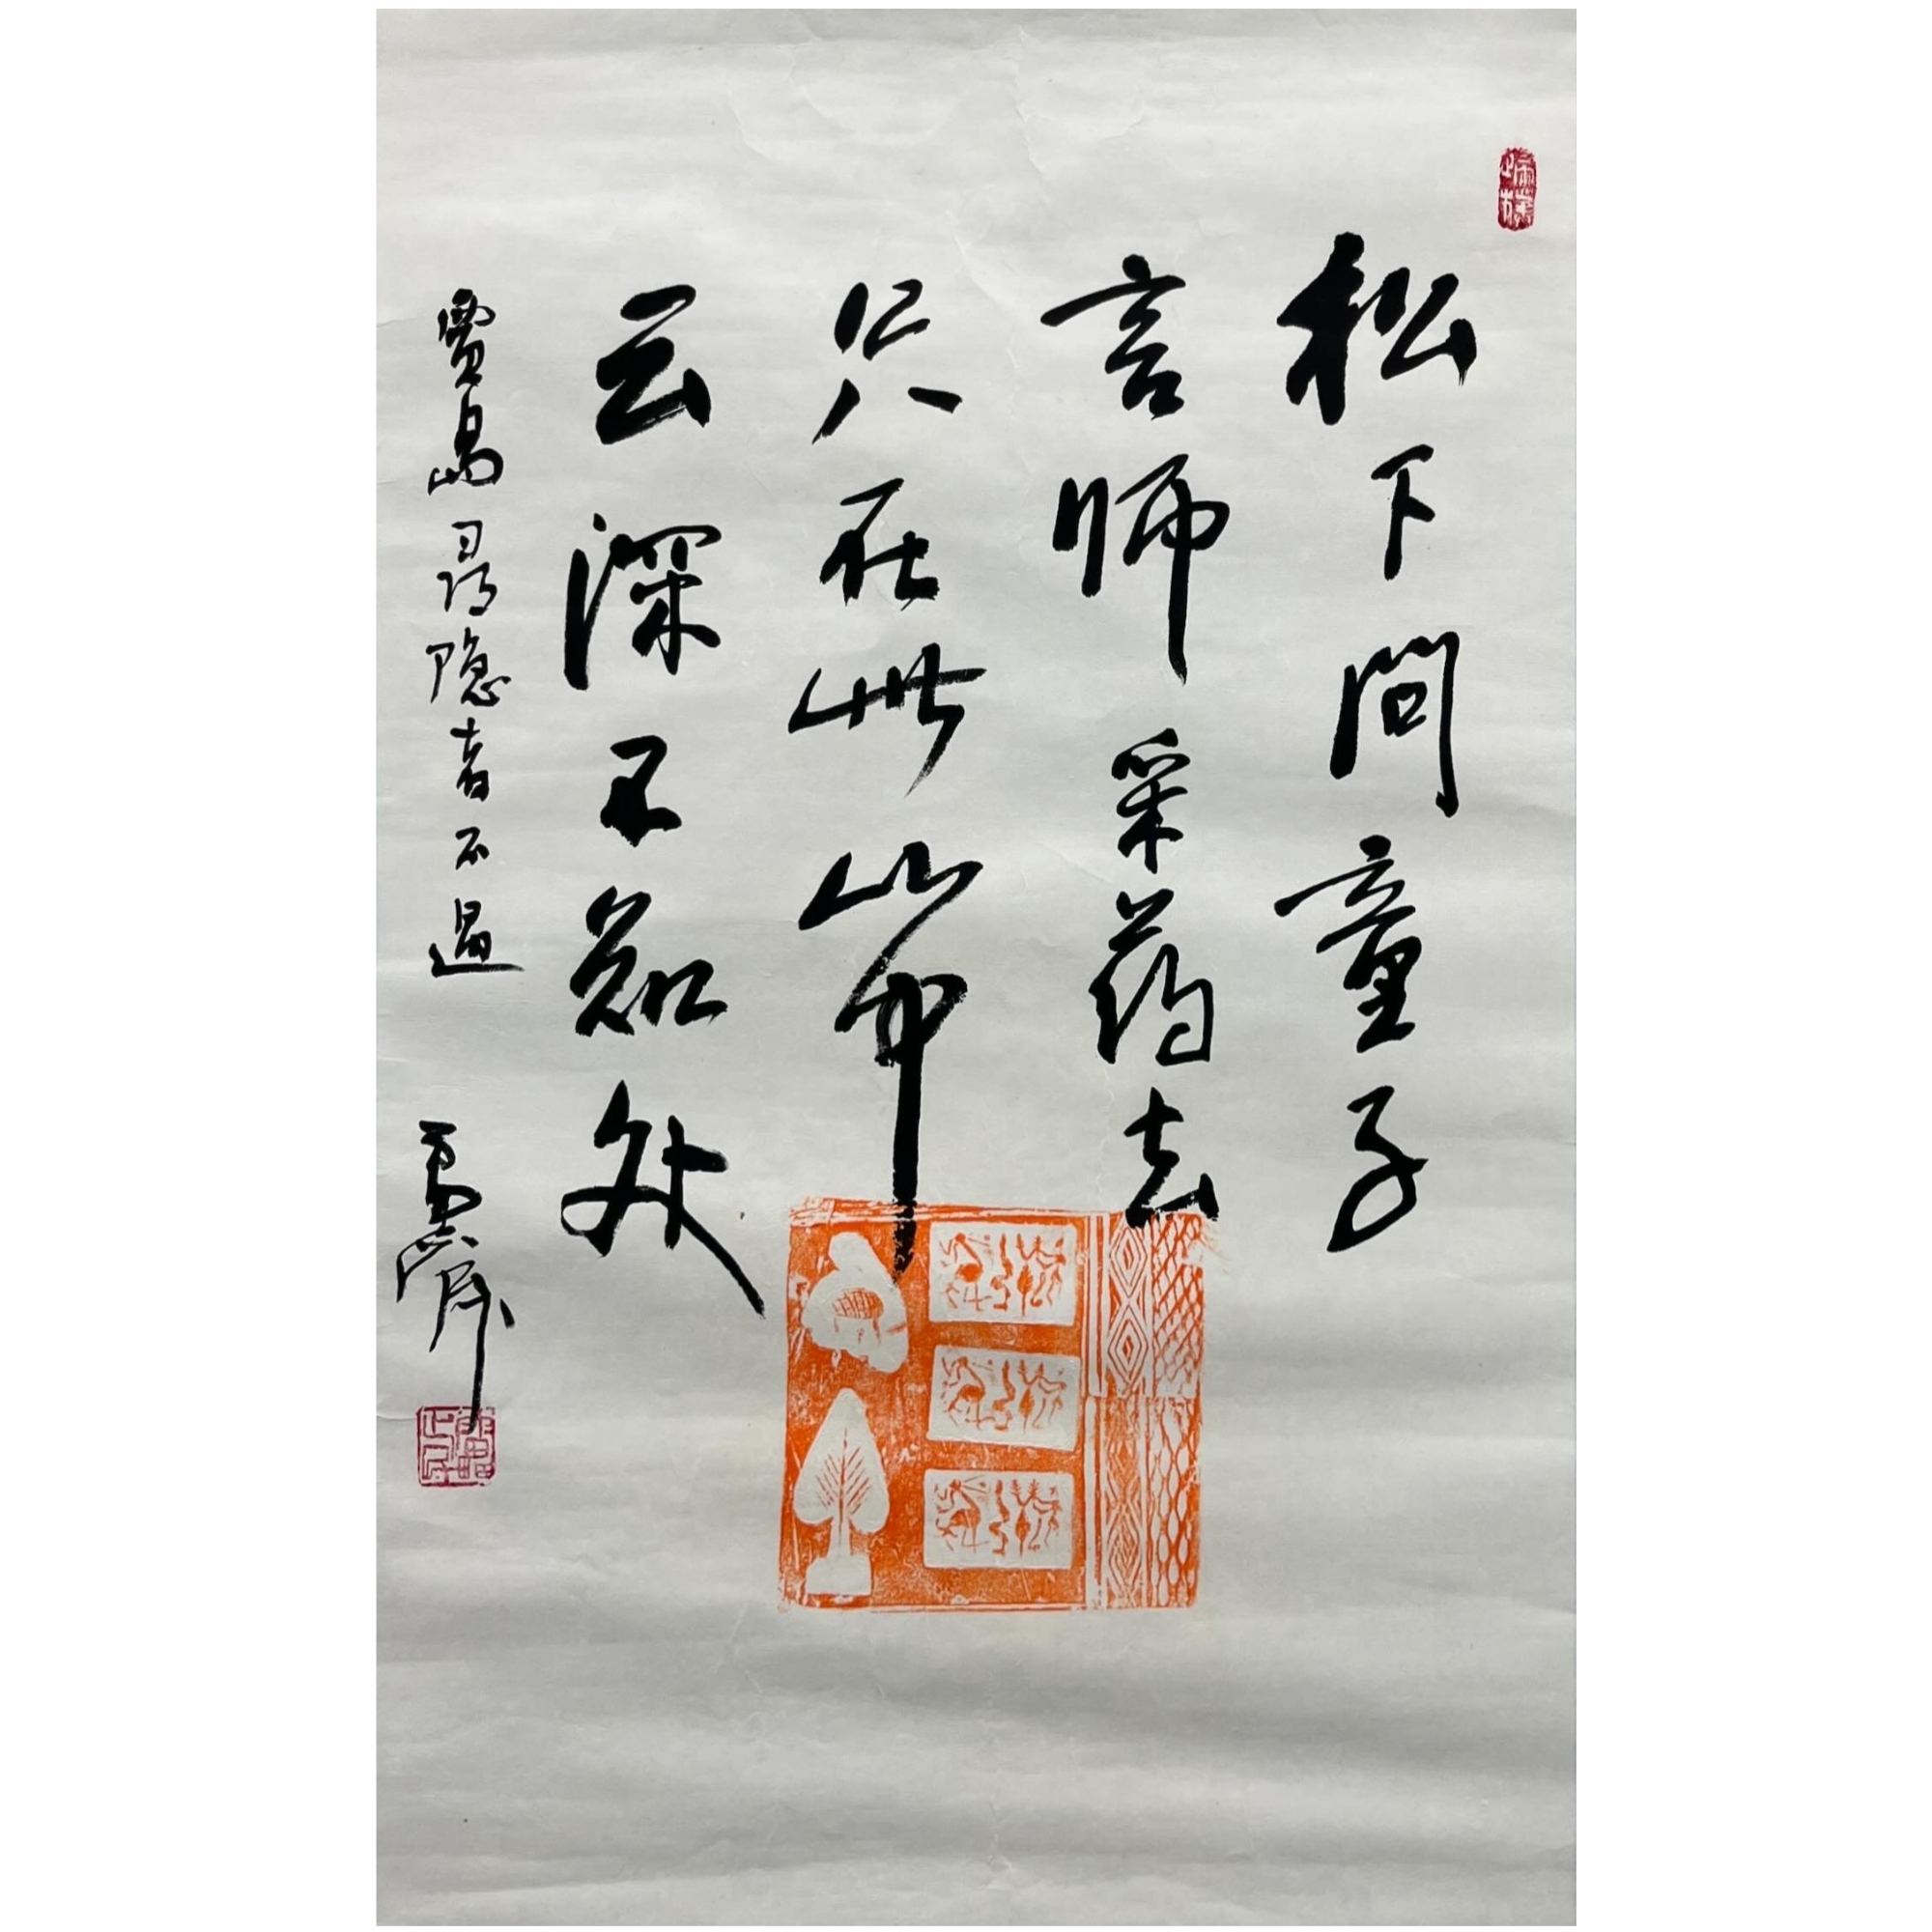 松下问童子
言师采药去
只在此山中
云深不知处
贾岛寻隐者不遇